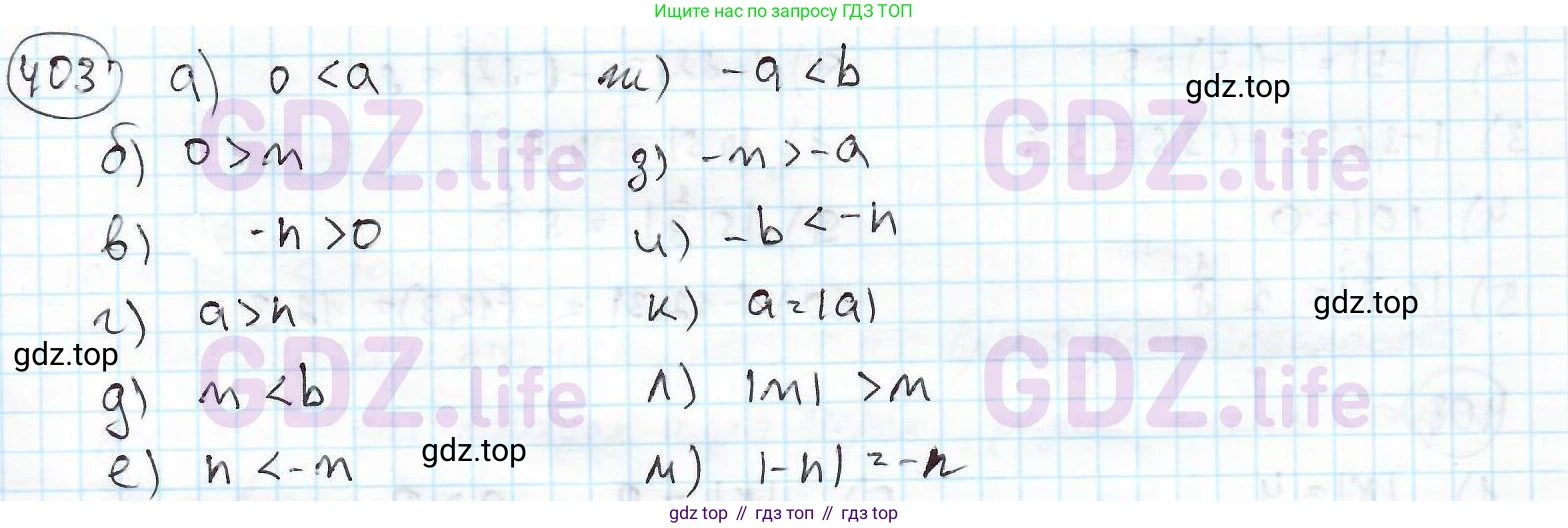 Ищите нас по запросу ГДЗ ТОП
403 а) 0 < a ж) -a < b
gdz.top
б) 0 > m з) -m > -a
GDZ.life GDZ.life
в) -n > 0 и) -b < -n
г) a > n к) a = |a|
gdz.top
gdz.top
GDZ.life GDZ.life
д) m < b л) |m| > m
gdz.top
е) n < -m м) |-n| = -n
gdz top // гдз топ // gdz.top